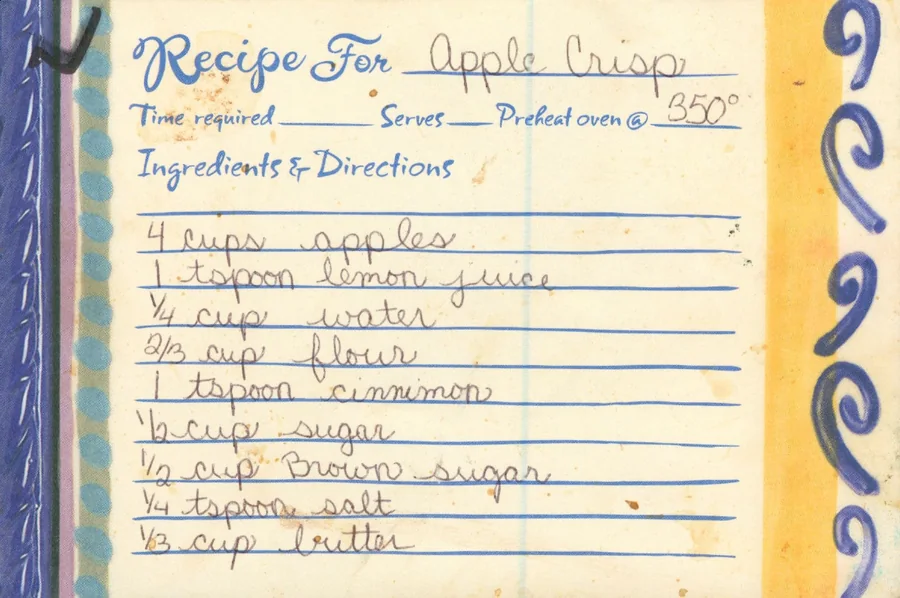 Recipe For Apple Crisp
Time required Serves Preheat oven @ 350°
Ingredients & Directions
4 cups apples
1 tspoon lemon juice
1/4 cup water
2/3 cup flour
1 tspoon cinnimon
1/2 cup sugar
1/2 cup Brown sugar
1/4 tspoon salt
1/3 cup butter